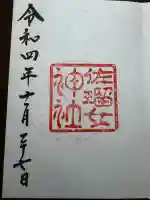 佐瑠女
神社
令和四年十月日